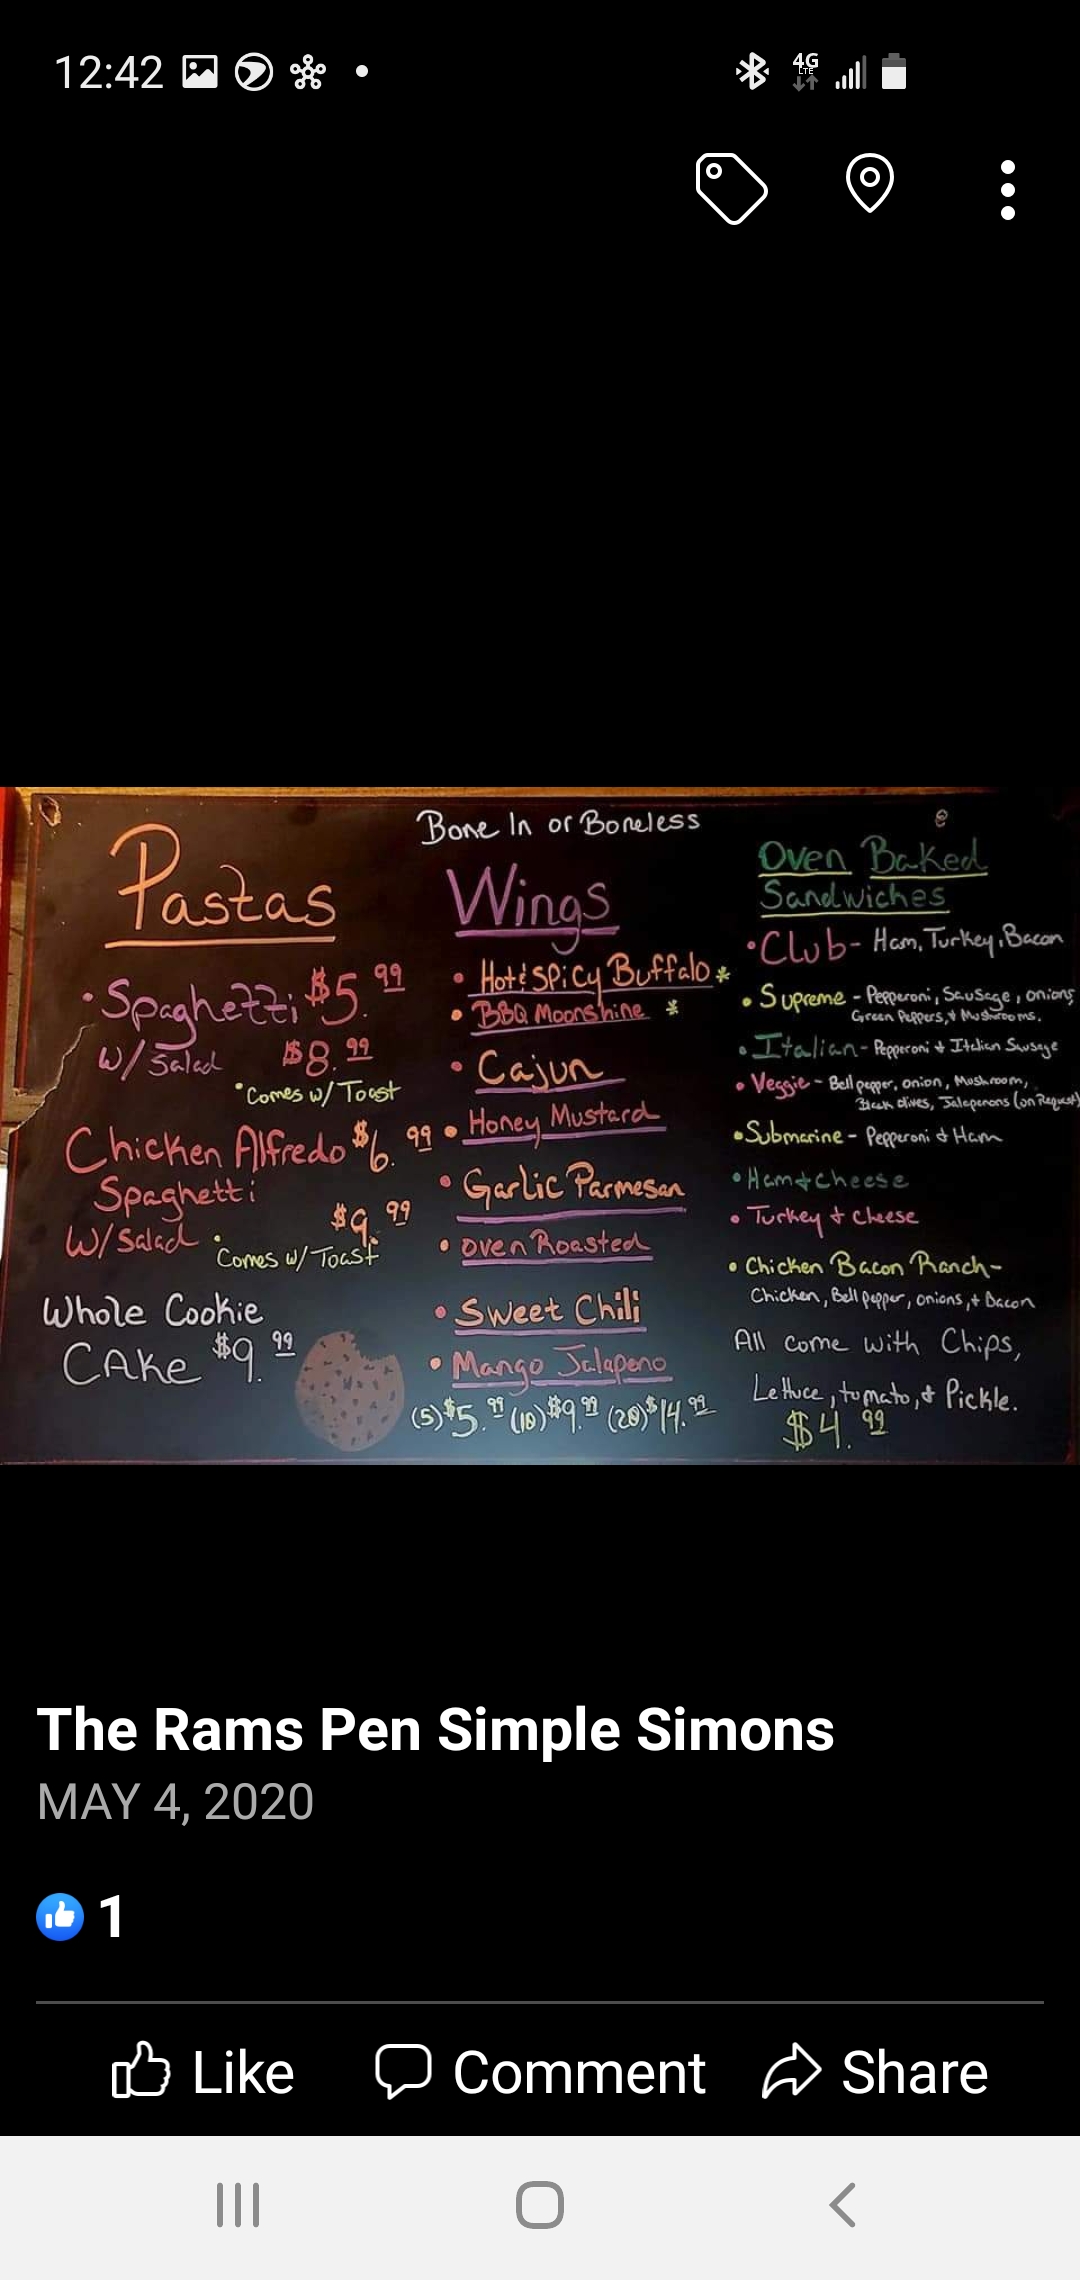 12:42
4G
LTE
Bone In or Boneless
Pastas
• Spaghetti $5.99
w/ Salad $8.99
*Comes w/ Toast
Chicken Alfredo $6.99
Spaghetti
W/ Salad $9.99
*Comes w/ Toast
Whole Cookie
CAke $9.99
Wings
• Hot & Spicy Buffalo *
• BBQ Moonshine *
• Cajun
• Honey Mustard
• Garlic Parmesan
• oven Roasted
• Sweet Chili
• Mango Jalapeno
(5) $5.99 (10) $9.99 (20) $14.99
Oven Baked
Sandwiches
• Club - Ham, Turkey, Bacon
• Supreme - Pepperoni, Sausage, onions
Green Peppers, & Mushrooms.
• Italian - Pepperoni & Italian Sausage
• Veggie - Bell pepper, onion, Mushroom,
Black olives, Jalepenons (on Request)
• Submarine - Pepperoni & Ham
• Ham & cheese
• Turkey & cheese
• Chicken Bacon Ranch -
Chicken, Bell pepper, onions, & Bacon
All come with Chips,
Lettuce, tomato, & Pickle.
$4.99
The Rams Pen Simple Simons
MAY 4, 2020
1
Like
Comment
Share